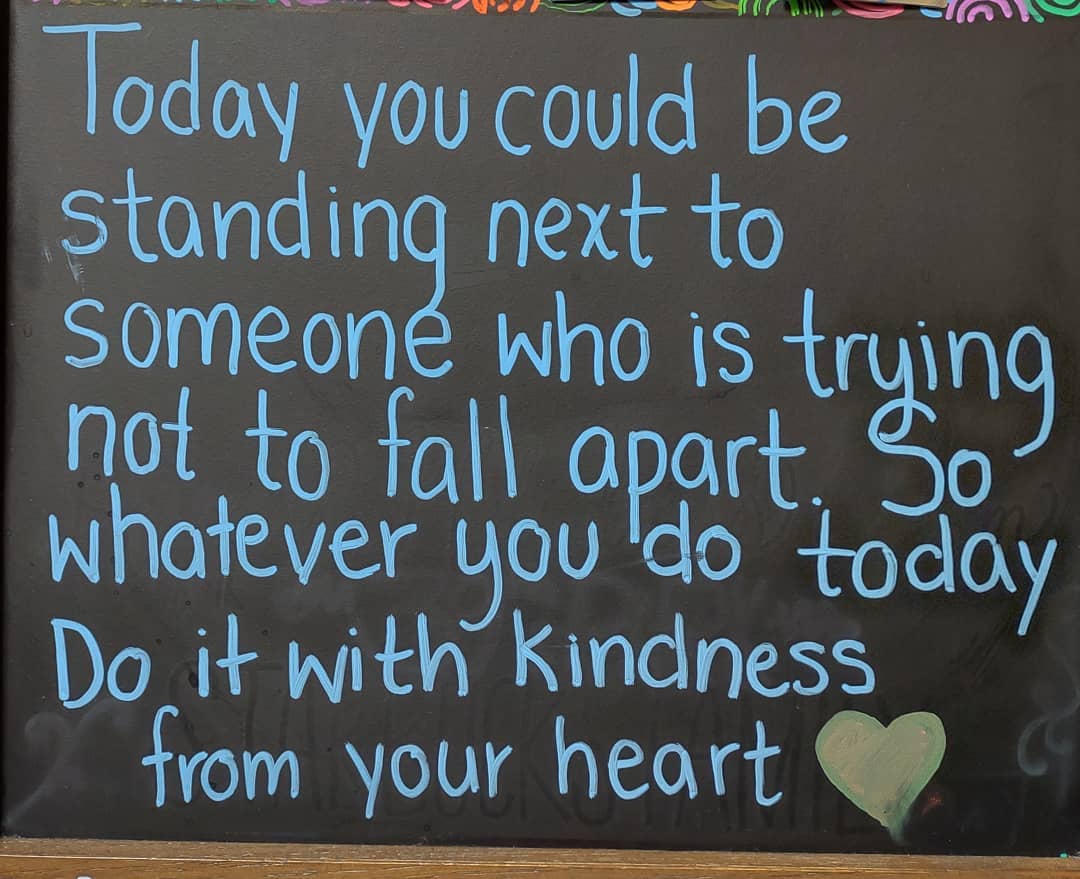 Today you could be
standing next to
someone who is trying
not to fall apart. So
whatever you do today
Do it with kindness
from your heart